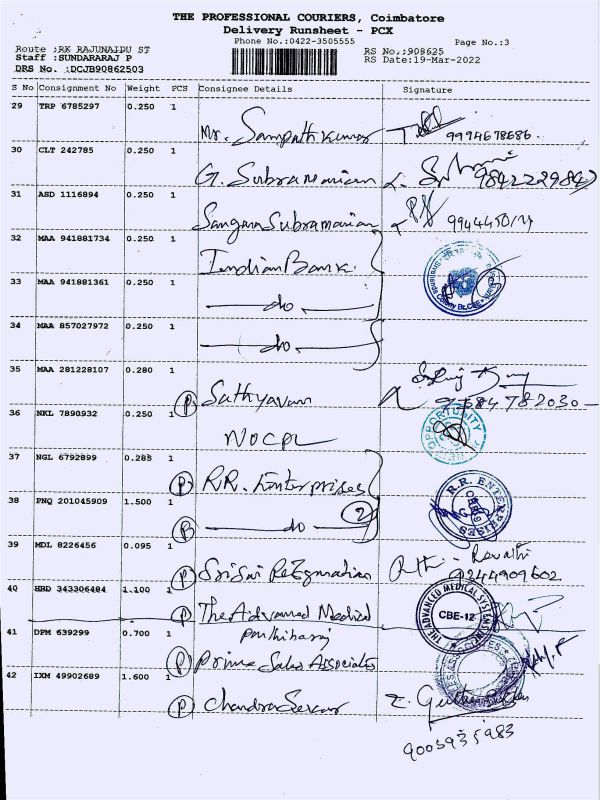 THE PROFESSIONAL COURIERS, Coimbatore
Delivery Runsheet - PCX
Phone No.:0422-3505555
Page No.:3
Route :RK RAJUNAIDU ST
RS No.:908625
Staff :SUNDARARAJ P
RS Date:19-Mar-2022
DRS No. :DCJB90862503
S No Consignment No Weight PCS Consignee Details Signature
29 TRP 6785297 0.250 1
Mr. Sampath Kumar 9994678686.
30 CLT 242785 0.250 1
G. Subramanian
31 ASD 1116894 0.250 1
Subramanian
32 MAA 941881734 0.250 1
Indian Bank.
33 MAA 941881361 0.250 1
do
34 MAA 857027972 0.250 1
do
35 MAA 281228107 0.280 1
P Sathyavam
36 NKL 7890932 0.250 1
NOCPL OPPORTUNITY
37 NGL 6792899 0.285 1
P RR. Enterprises R.R. ENTERPRISES
38 PNQ 201045909 1.500 1
2
P do
39 MDL 8226456 0.095 1
P Revathi
9244909602
40 HRD 343306484 1.100 1
P The Advanced Medical THE ADVANCED MEDICAL SYSTEMS CBE-12
41 DPM 639299 0.700 1
P Prime Sales Associates
42 IXM 49902689 1.600 1
P Chandra Sekar
9003935983